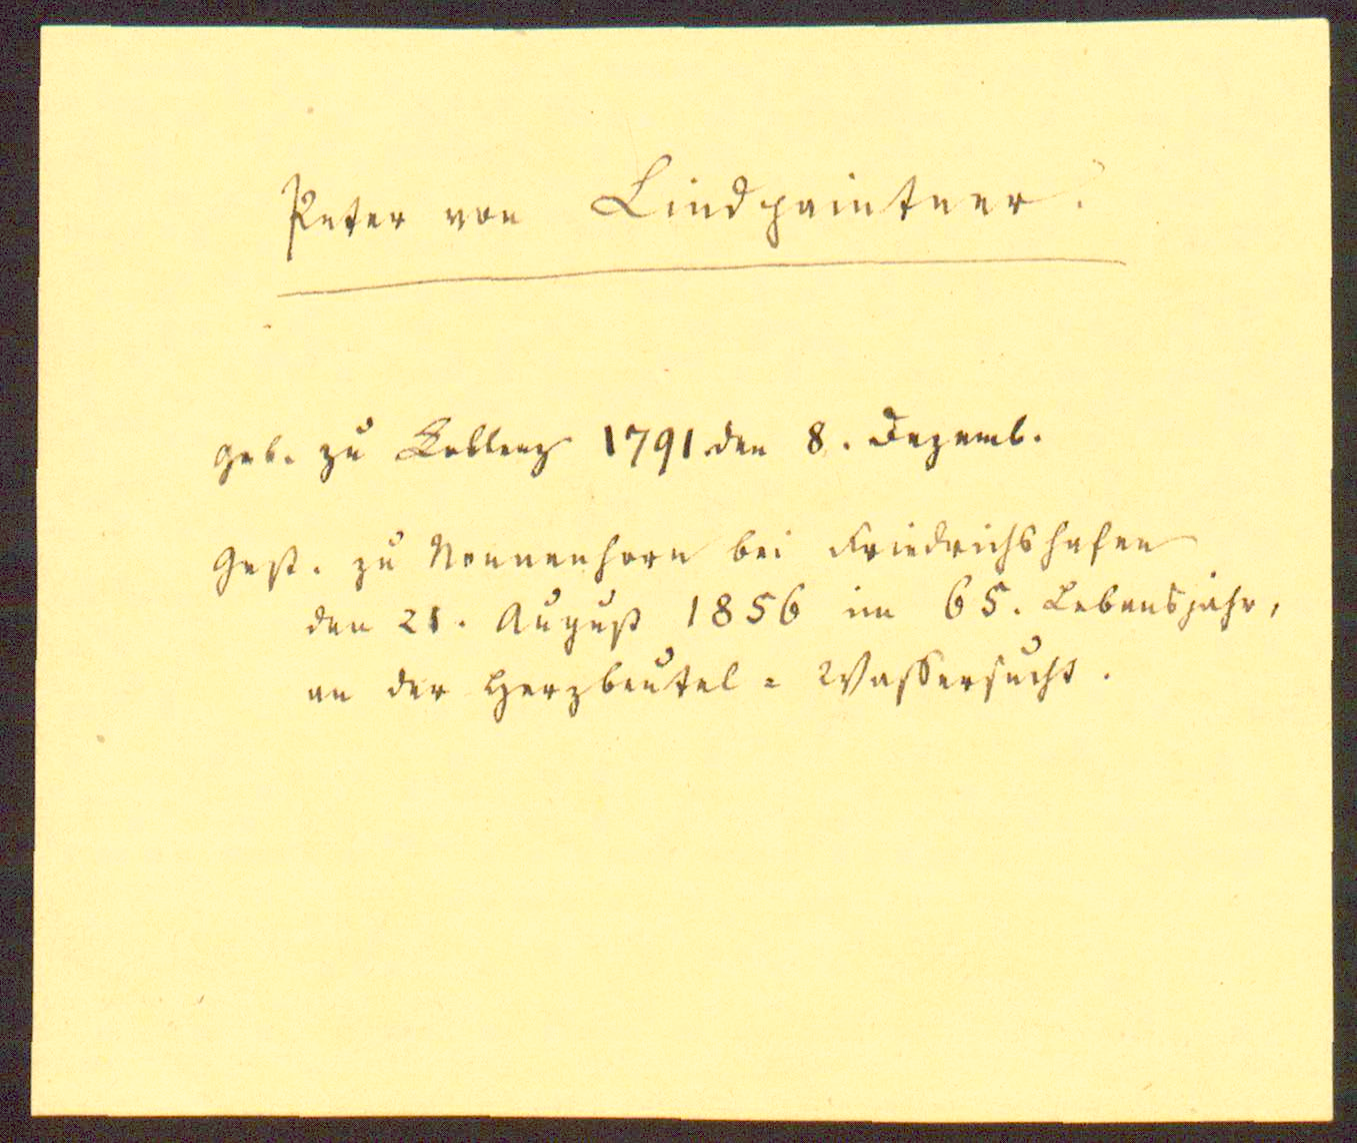 Peter von Lindpaintner.
geb. zu Koblenz 1791 den 8. Dezemb.
Gest. zu Nonnenhorn bei Friedrichshafen
den 21. August 1856 im 65. Lebensjahr,
an der Herzbeutel = Wassersucht.